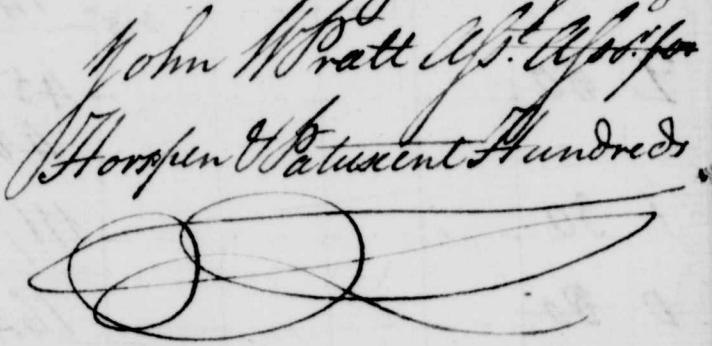 John W Pratt Asst. Assr. for
Horspen & Patuxent Hundreds.